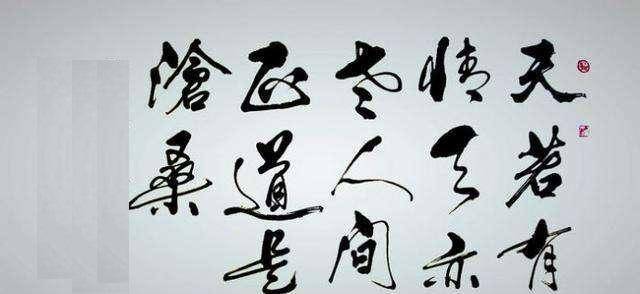 天若有
情天亦
老人間
正道是
滄桑